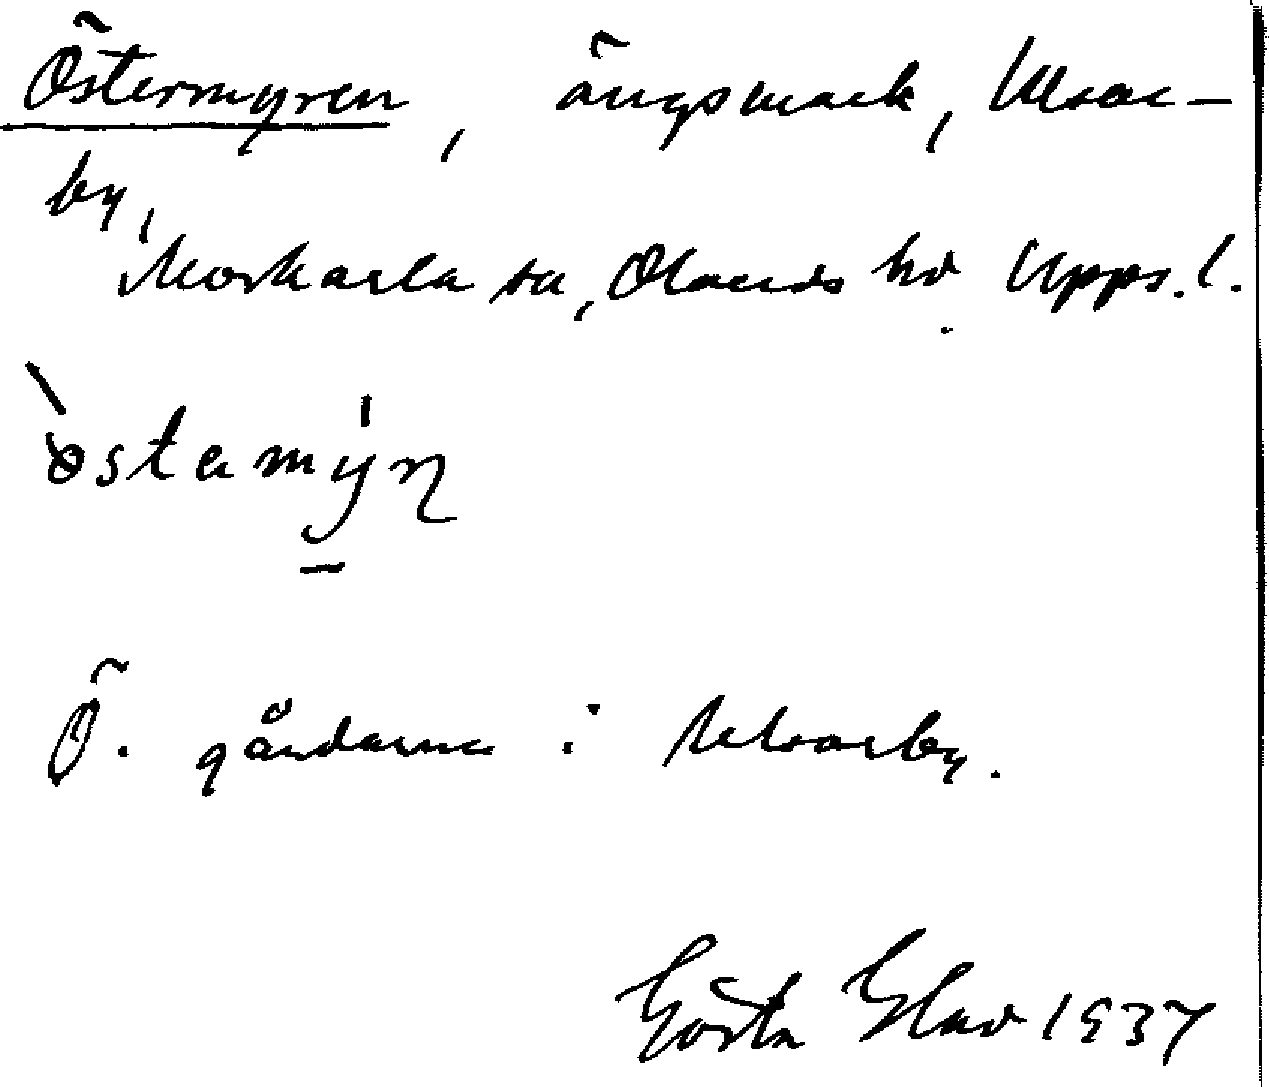 Östermyren, ängsmark, Ulvar-
by,
Morkarla sn, Olands hd Upps. l.
östamýn
Ö. gårdarna i Ulvarby.
Gösta Elav 1937